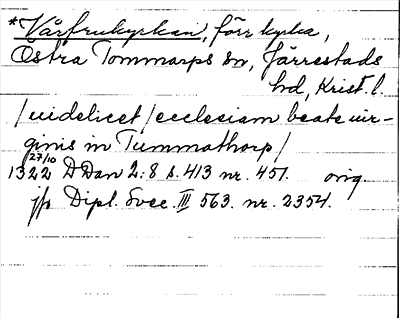 *Vårfrukyrkan, förr kyrka,
Östra Tommarps sn, Järrestads
hd, Krist. l.
/uidelicet/ecclesiam beate uir-
ginis in Tummathorp/
27/10
1322 DDan 2:8 s. 413 nr. 451. orig.
jfr Dipl. Svec. III 563. nr. 2354.